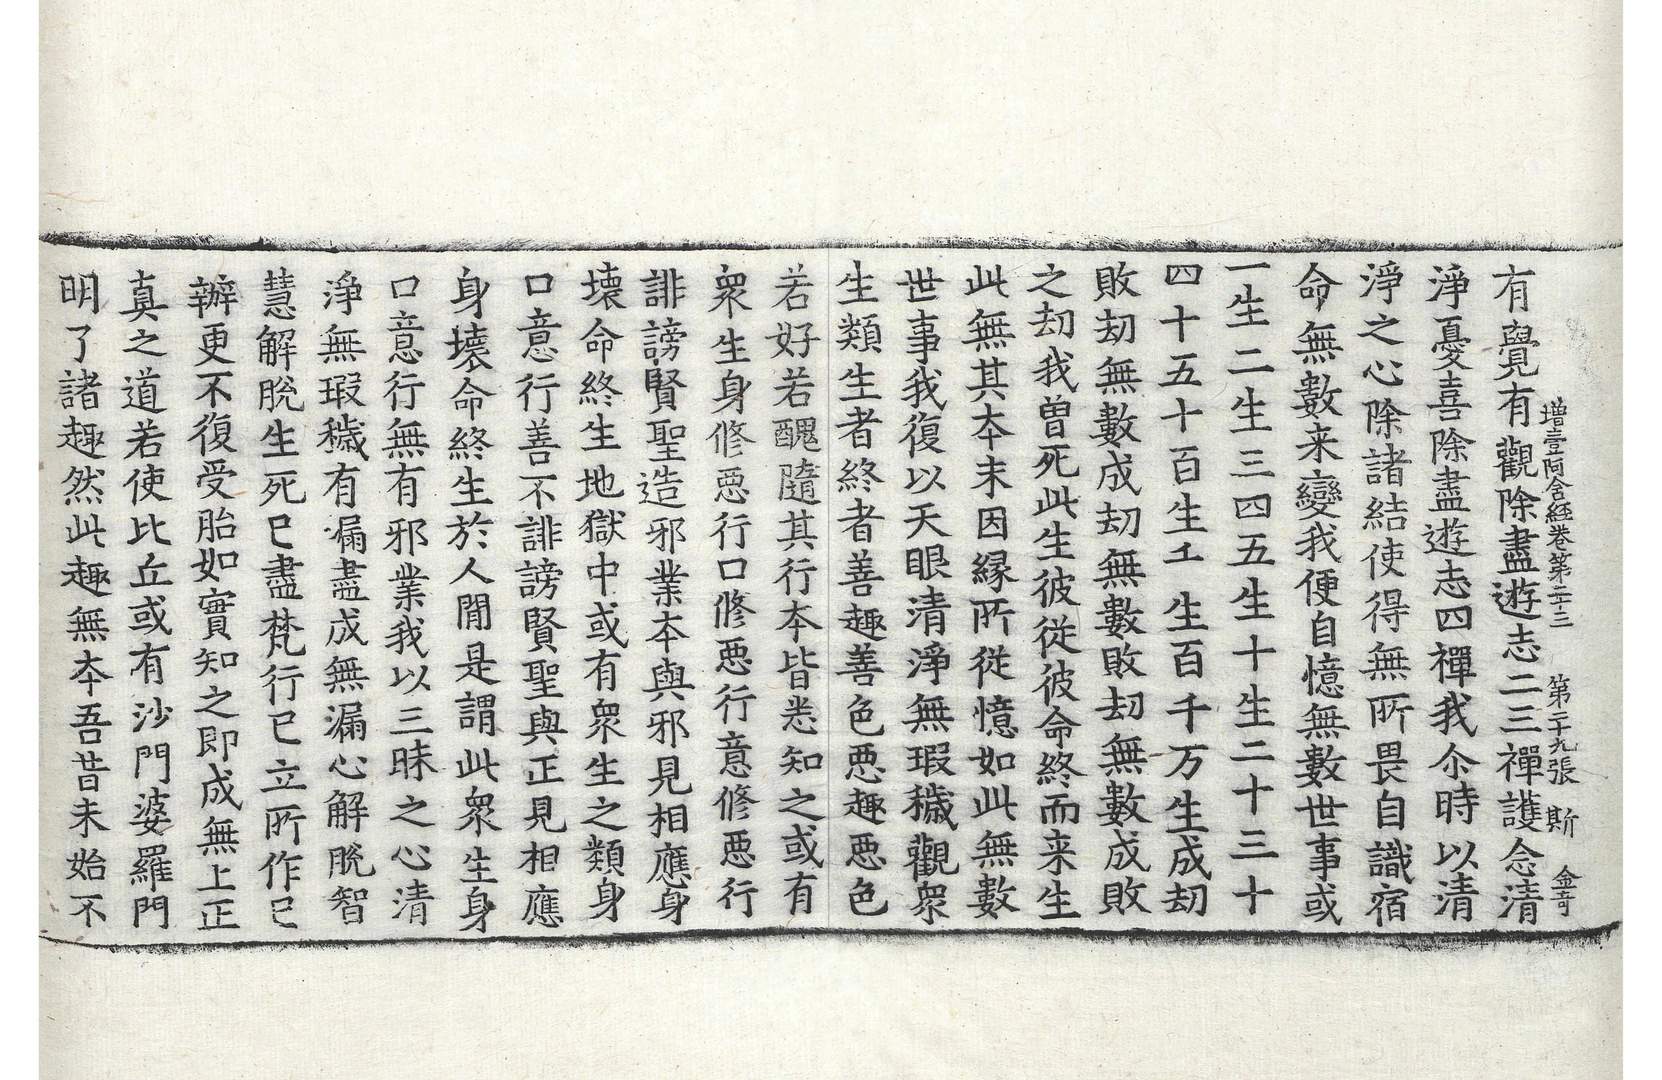 增壹阿含經卷第二十三　第二十九張　斯　金哥
有覺有觀除盡遊志二三禪護念清
淨憂喜除盡遊志四禪我尒時以清
淨之心除諸結使得無所畏自識宿
命無數来變我便自憶無數世事或
一生二生三四五生十生二十三十
四十五十百生千生百千万生成刧
敗刧無數成刧無數敗刧無數成敗
之刧我曽死此生彼從彼命終而来生
此無其夲末因縁所從憶如此無數
世事我復以天眼清淨無瑕穢觀衆
生類生者終者善趣善色惡趣惡色
若好若醜隨其行夲皆悉知之或有
衆生身修惡行口修惡行意修惡行
誹謗賢聖造邪業夲與邪見相應身
壊命終生地獄中或有衆生之類身
口意行善不誹謗賢聖與正見相應
身壊命終生於人間是謂此衆生身
口意行無有邪業我以三昧之心清
淨無瑕穢有漏盡成無漏心解脫智
慧解脫生死已盡梵行已立所作已
辦更不復受胎如實知之即成無上正
真之道若使比丘或有沙門婆羅門
明了諸趣然此趣無夲吾昔未始不